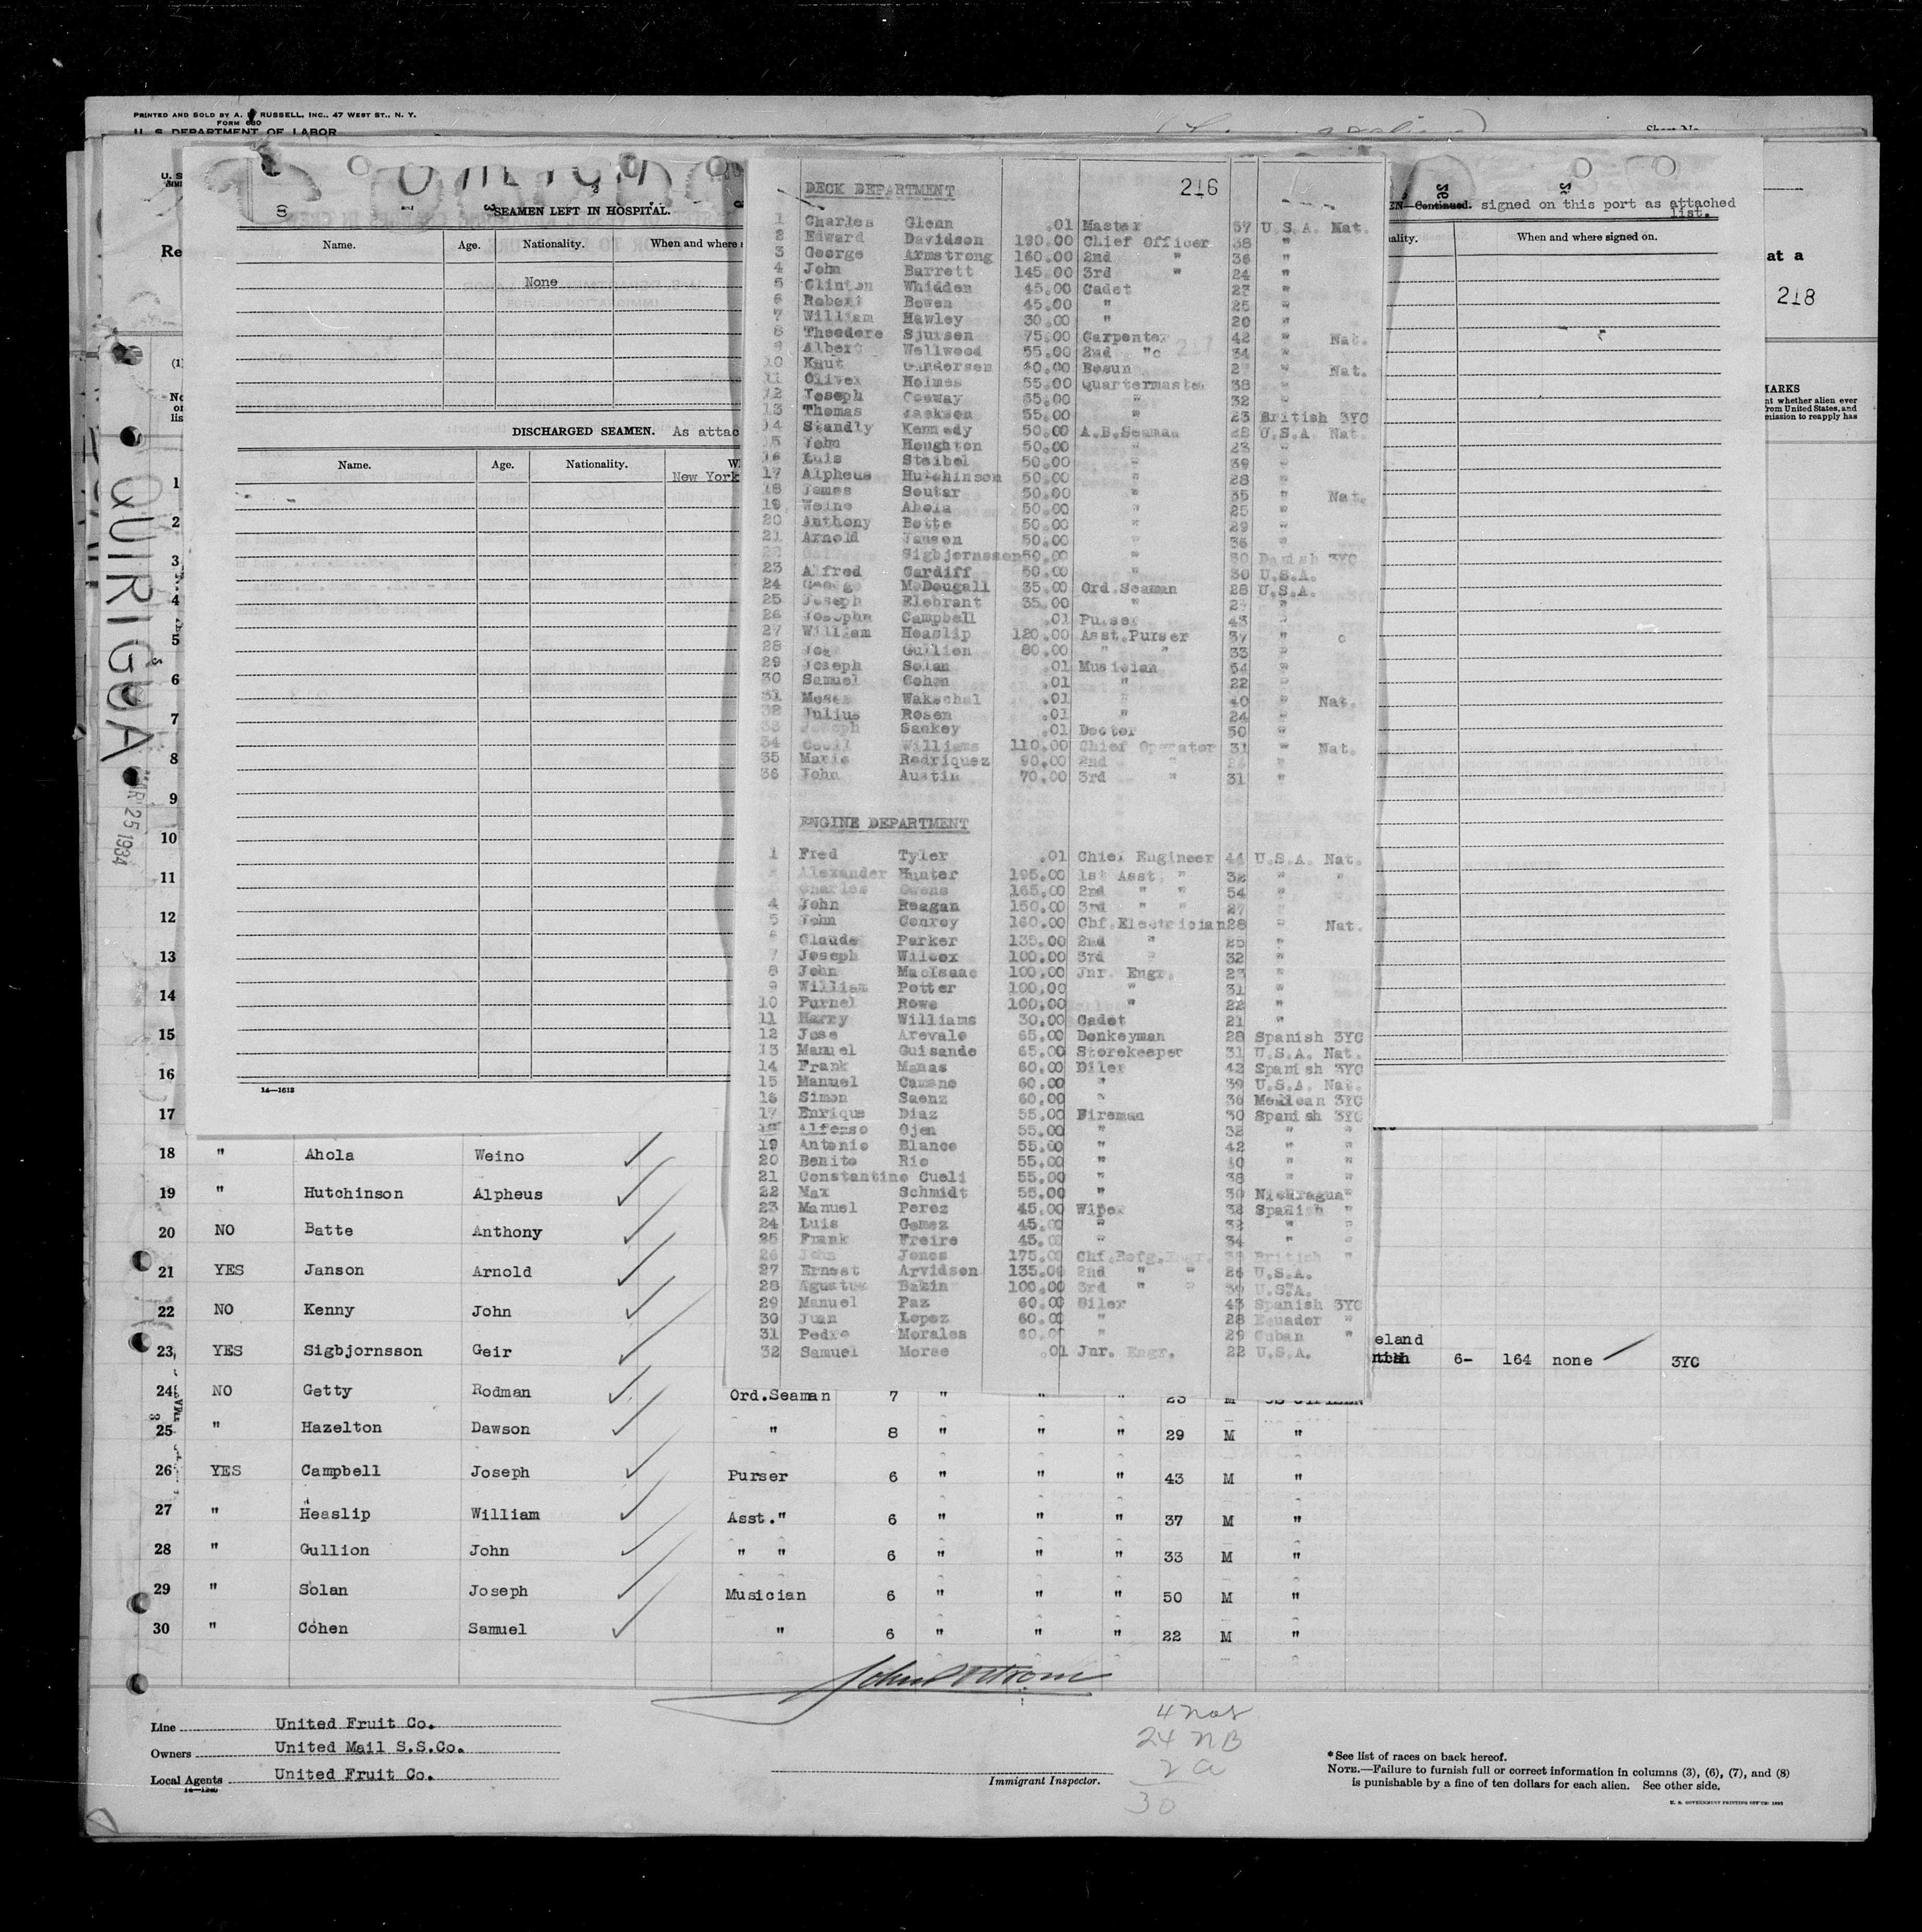 PRINTED AND SOLD BY A. RUSSELL, INC., 47 WEST ST., N. Y.
FORM 680
U. S. DEPARTMENT OF LABOR
SEAMEN LEFT IN HOSPITAL.
Name. Age. Nationality. When and where
None
DISCHARGED SEAMEN. As attac
Name. Age. Nationality. W
New York
14—1618
Continued. signed on this port as attached
list.
ality. When and where signed on.
at a
218
MARKS
nt whether alien ever
from United States, and
mission to reapply has
QUIRIGUA
25 1934
216
DECK DEPARTMENT
1 Charles Glenn .01 Master 37 U.S.A. Nat.
2 Edward Davidson 190.00 Chief Officer 38 "
3 George Armstrong 160.00 2nd " 36 "
4 John Barrett 145.00 3rd " 24 "
5 Clinton Whidden 45.00 Cadet 23 "
6 Robert Bowen 45.00 " 25 "
7 William Hawley 30.00 " 20 "
8 Theodore Sjursen 75.00 Carpenter 42 " Nat.
9 Albert Wellwood 55.00 2nd "c 34 "
10 Knut Gundersen 60.00 Bosun " Nat.
11 Oliver Holmes 55.00 Quartermaster 38 "
12 Joseph 55.00 " 32 "
13 Thomas Jackson 55.00 " 23 British 3YC
14 Standly Kennedy 50.00 A.B.Seaman 28 U.S.A. Nat.
15 John Houghton 50.00 " 23 "
16 Luis Steibel 50.00 " 39 "
17 Alpheus Hutchinson 50.00 " 28 "
18 James Soutar 50.00 " 35 " Nat.
19 Weino Ahola 50.00 " 25 "
20 Anthony Botte 50.00 " 29 "
21 Arnold Jansen 50.00 " 36 "
22 Sigbjornsson 50.00 " 30 Danish 3YC
23 Alfred Cardiff 50.00 " 30 U.S.A.
24 George McDougall 35.00 Ord.Seaman 28 U.S.A.
25 Joseph Elebrant 35.00 " "
26 Josephn Campbell .01 Purser 43 "
27 William Heaslip 120.00 Asst.Purser 37 " c
28 Gullion 80.00 " " 33 "
29 Joseph Solan .01 Musician 54 "
30 Samuel Cohen .01 " 22 "
31 Moses Wakschal .01 " 40 " Nat.
32 Julius Rosen .01 " 24 "
33 Joseph Sackey .01 Doctor 50 "
34 Cecil Williams 110.00 Chief Operator 31 " Nat.
35 Mario Rodriquez 90.00 2nd " "
36 John Austin 70.00 3rd " 31 "
ENGINE DEPARTMENT
1 Fred Tyler .01 Chief Engineer 44 U.S.A. Nat.
Alexander Hunter 195.00 1st Asst. " 32 " "
Charles Owens 165.00 2nd " " 54 "
4 John Reagan 150.00 3rd " " 27 "
5 John Conroy 160.00 Chf.Electrician 28 " Nat.
6 Claude Parker 135.00 2nd " 25 "
7 Joseph Wilcox 100.00 3rd " 32 "
8 John MacIsaac 100.00 Jnr. Engr. 23 "
9 William Potter 100.00 " 31 "
10 Purnel Rowe 100.00 " 22 "
11 Harry Williams 30.00 Cadet 21 "
12 Jose Arevalo 65.00 Donkeyman 28 Spanish 3YC
13 Manuel Guisande 65.00 Storekeeper 31 U.S.A. Nat.
14 Frank Manas 60.00 Oiler 42 Spanish 3YC
15 Manuel Camano 60.00 " 39 U.S.A. Nat.
16 Simon Saenz 60.00 " 36 Mexican 3YC
17 Enrique Diaz 55.00 Fireman 30 Spanish 3YC
18 Alfonso Ojen 55.00 " 32 " "
19 Antonio Blance 55.00 " 42 " "
20 Benito Rio 55.00 " 40 " "
21 Constantino Cueli 55.00 " 38 " "
22 Max Schmidt 55.00 " 30 Nicaragua "
23 Manuel Perez 45.00 Wiper 38 Spanish "
24 Luis Gomez 45.00 " 32 " "
25 Frank Freire 45.00 " 34 " "
26 John Jones 175.00 Chf.Refg.Engr. 38 British "
27 Ernest Arvidson 135.00 2nd " " 26 U.S.A.
28 Agustus Bazin 100.00 3rd " " 39 U.S.A.
29 Manuel Paz 60.00 Oiler 43 Spanish 3YC
30 Juan Lopez 60.00 " 28 Ecuador "
31 Pedro Morales 60.00 " 29 Cuban "
32 Samuel Morse .01 Jnr. Engr. 22 U.S.A.
1
2
3
4
5
6
7
8
9
10
11
12
13
14
15
16
17
18 " Ahola Weino
19 " Hutchinson Alpheus
20 NO Batte Anthony
21 YES Janson Arnold
22 NO Kenny John
23 YES Sigbjornsson Geir eland 6- 164 none 3YC
24 NO Getty Rodman Ord.Seaman 7 " " " 23 M US CITIZEN
25 " Hazelton Dawson " 8 " " " 29 M "
26 YES Campbell Joseph Purser 6 " " " 43 M "
27 " Heaslip William Asst." 6 " " " 37 M "
28 " Gullion John " " 6 " " " 33 M "
29 " Solan Joseph Musician 6 " " " 50 M "
30 " Cohen Samuel " 6 " " " 22 M "
Line United Fruit Co.
Owners United Mail S.S.Co.
Local Agents United Fruit Co.
14—1240
Immigrant Inspector.
4 nat
24 NB
2 a
30
*See list of races on back hereof.
NOTE.—Failure to furnish full or correct information in columns (3), (6), (7), and (8)
is punishable by a fine of ten dollars for each alien. See other side.
U. S. GOVERNMENT PRINTING OFFICE: